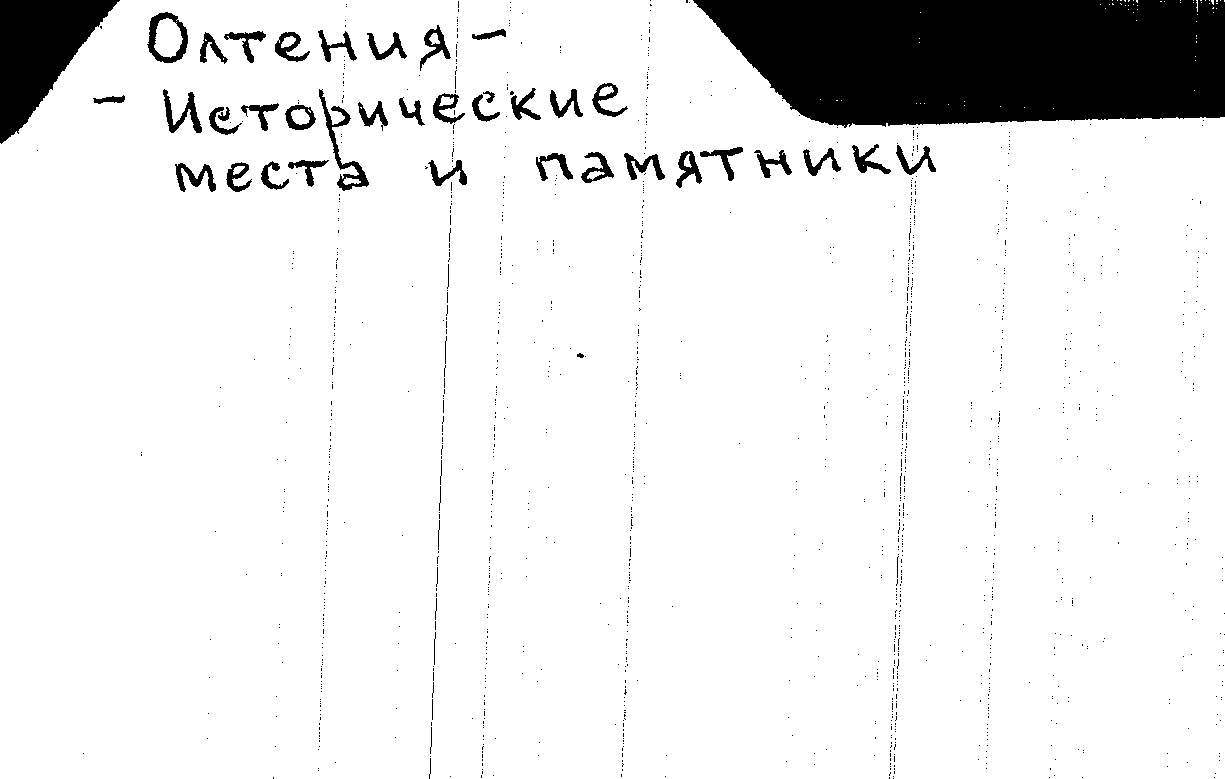 Олтения -
- Исторические
места и памятники